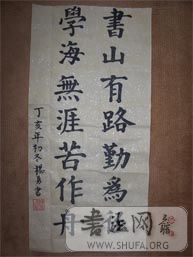 書山有路勤為
學海無涯苦作舟
丁亥年初冬楊勇書
書法网
WWW.SHUFA.ORG